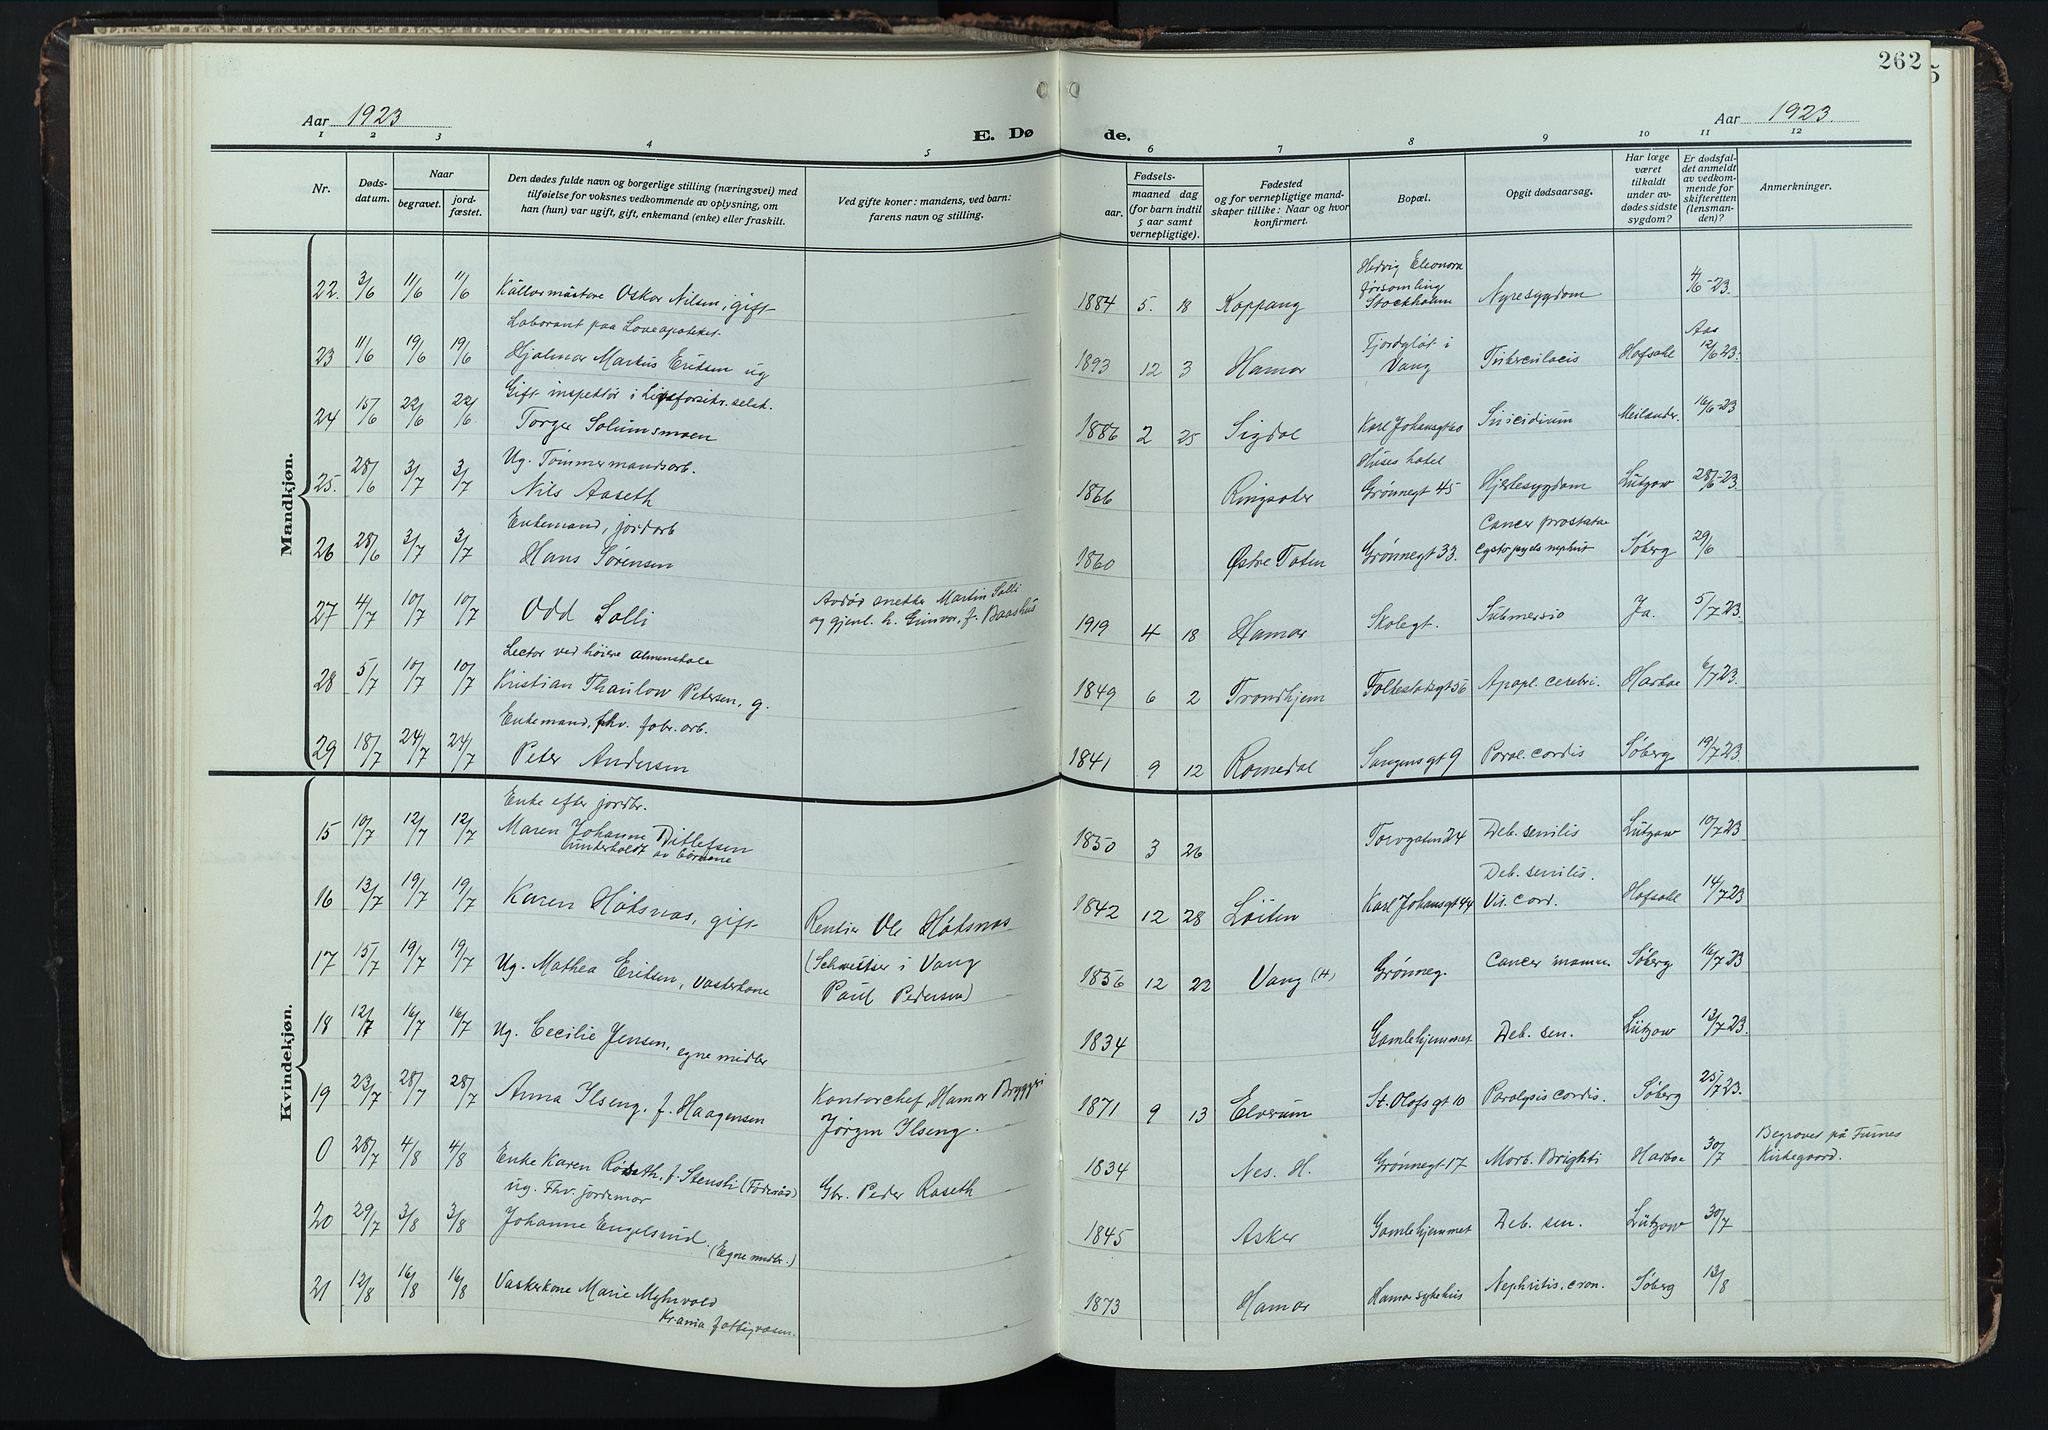 262
5
Aar 1923
E. Døde.
Aar 1923.
1 2 3 4 5 6 7 8 9 10 11 12
Nr.
Dødsdatum.
Naar
begravet.
jordfæstet.
Den dødes fulde navn og borgerlige stilling (næringsvei) med
tilføielse for voksnes vedkommende av oplysning, om
han (hun) var ugift, gift, enkemand (enke) eller fraskilt.
Ved gifte koner: mandens, ved barn:
farens navn og stilling.
Fødsels-
aar.
maaned dag
(for barn indtil
5 aar samt
vernepligtige).
Fødested
og for vernepligtige mandskaper tillike: Naar og hvor
konfirmert.
Bopæl.
Opgit dødsaarsag.
Har læge
været
tilkaldt
under avdødes sidste
sygdom?
Er dødsfaldet anmeldt
av vedkommende for
skifteretten
(lensmanden)?
Anmerkninger.
Mandkjøn.
22. 3/6 11/6 11/6 Källarmästare Oskar Nilsen, gift 1884 5. 18 Koppang Hedvig Eleonora
församling
Stockholm Nyresygdom 4/6-23.
Laborant paa Løveapoteket
23 11/6 19/6 19/6 Hjalmar Markus Eriksen ug 1893 12 3 Hamar Fjordgløt i
Vang Tuberculosis Hofsahl Aas
12/6 23.
Gift inspektør i Livsforsikr.selsk.
24 15/6 22/6 22/6 Torger Solumsmoen 1886 2 25 Sigdal Karl Johansgt Suicidium Meilænder. 16/6-23
Ug. Tømmermandsarb.
25. 28/6 3/7 3/7 Nils Aaseth 1866 Ringsaker Huses hotel
Grønnegt 45 Hjertesygdom Lützow 28/6-23.
Enkemand, jordarb
26 28/6 3/7 3/7 Hans Sørensen 1860 Østre Toten Grønnegt 33. Cancer prostatae
Søberg 29/6
27 4/7 10/7 10/7 Odd Solli Avdød snekker Martin Solli
og gjenl. h. Gunvor, f. Baashus 1919 4 18 Hamar Skolegt. Submersio Ja. 5/7 23.
Lector ved høiere almenskole
28 5/7 10/7 10/7 Kristian Thaulow Petersen, g. 1849 6 2 Trondhjem Folkestadsgt 56 Apopl. cerebri. Harboe 6/7 23.
Enkemand, fhv. fabr. arb.
29 18/7 24/7 24/7 Peter Andersen 1841 9 12 Romedal Sangensgt 9 Paral. cordis Søberg 19/7 23.
Kvindekjøn.
Enke efter jordbr.
15 10/7 12/7 12/7 Maren Johanne Ditlefsen
(underholdt av børnene 1850 3 26 Torvgaten 24 Deb. senilis Lützow 10/7 23
16 13/7 19/7 19/7 Karen Høksnas, gift Rentier Ole Høksnas 1842 12 28 Løiten Karl Johansgt 44 Deb. senilis.
Vit. cord. Hofsahl 14/7 23
17 15/7 19/7 19/7 Ug. Mathea Eriksen, vaskekone (Schweitser i Vang
Paul Pedersen) 1856 12 22 Vang (H) Grønneg. Cancer mamm. Søberg 16/7 23
18 12/7 16/7 16/7 Ug. Cecilie Jensen, egne midler 1834 Gamlehjemmet Deb. sen. Lützow 13/7 23.
19 23/7 28/7 28/7 Anna Ilseng, f. Haagensen Kontorchef Hamar Bryggeri
Jørgen Ilseng. 1871 9 13 Elverum St. Olofsgt 10 Paralysis cordis. Søberg 25/7 23.
0 28/7 4/8 4/8 Enke Karen Roseth, f. Stensli (Føderåd) Gbr. Peder Roseth 1834 Nes. H. Grønnegt 17 Morb. Brighti Harboe 30/7 Begravet på Furnes
Kirkegaard.
Ug. Fhv. jordemor
20 29/7 3/8 3/8 Johanne Engelsrud. (Egne midler.) 1845 Asker Gamlehjemmet Deb. sen. Lützow 30/7
21 12/8 16/8 16/8 Vaskekone Marie Myhrvold
Kr.ania fattigvæsen. 1873 Hamar Hamar sykehus Nephritis, cron. Søberg 13/8